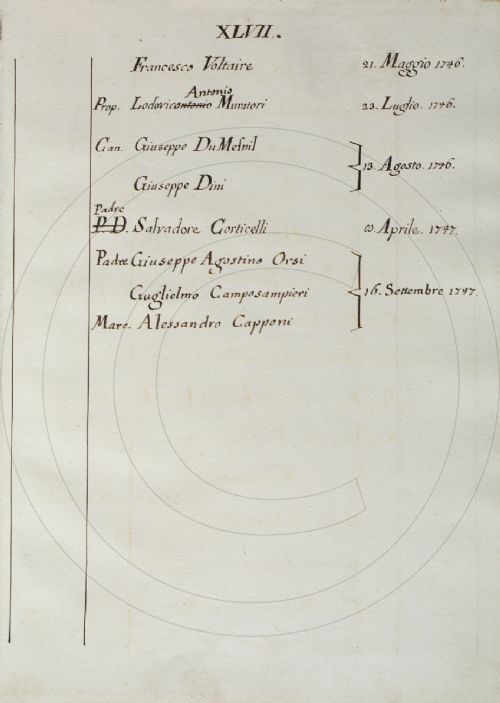 XLVII.
Francesco Voltaire 21. Maggio 1746.
Antonio
Prop. Lodovicantonio Muratori 23. Luglio. 1746.
Can. Giuseppe DuMesnil
13. Agosto. 1746.
Giuseppe Dini
Padre
P. D. Salvadore Corticelli Aprile. 1747.
Padre Giuseppe Agostino Orsi
Guglielmo Camposampieri 16. Settembre 1747.
Marc. Alessandro Capponi